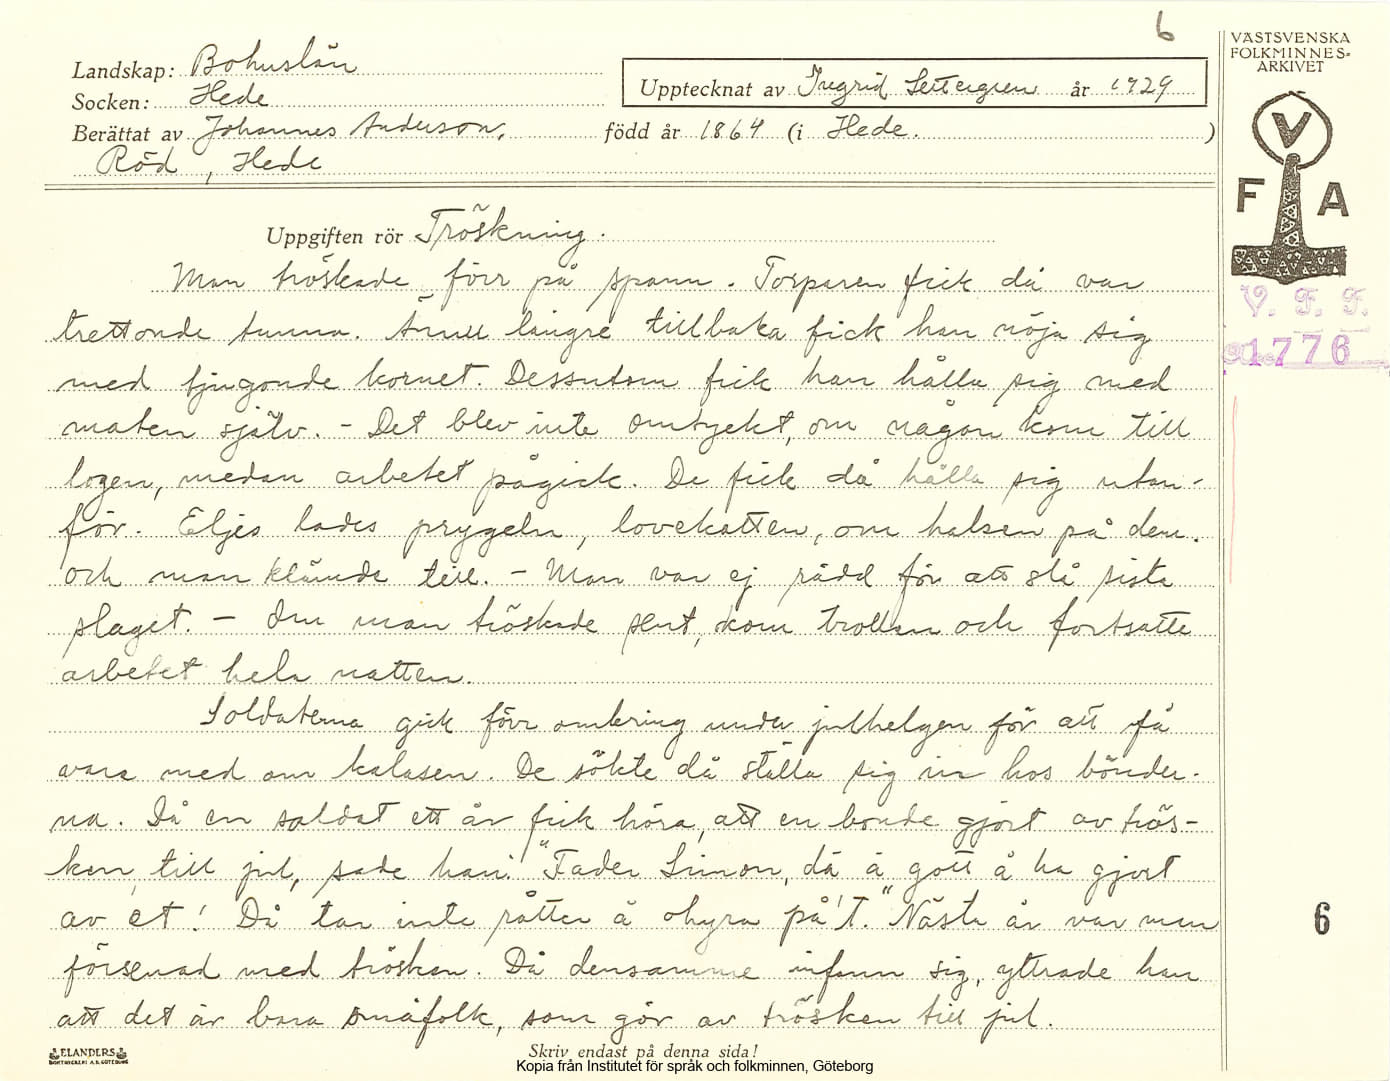 6
VÄSTSVENSKA
FOLKMINNES-
ARKIVET
Landskap: Bohuslän
Socken: Hede
Upptecknat av Ingrid år 1929
Berättat av Johannes Anderson, född år 1864 (i Hede. )
Röd, Hede
V
F A
V. F. F.
1776
Uppgiften rör Tröskning.
Man tröskade förr på spann. Torparen fick då var
trettonde tunna. Ännu längre tillbaka fick han nöja sig
med tjugonde kornet. Dessutom fick han hålla sig med
maten själv. - Det blev inte omtyckt, om någon kom till
logen, medan arbetet pågick. De fick då hålla sig utan-
för. Eljes lades prygeln, lovekatten, om halsen på dem.
och man klämde till. - Man var ej rädd för att slå sista
slaget. - Om man tröskade sent, kom trollen och fortsatte
arbetet hela natten.
Soldaterna gick förr omkring under julhelgen för att få
vara med om kalasen. De sökte då ställa sig in hos bönder-
na. Då en soldat ett år fick höra, att en bonde gjort av trös-
ken till jul, sade han: "Fader Simon, dä ä gott å ha gjort
av et! Då tar inte råtter å ohyra på 't." Nästa år var man
försenad med tröskan. Då densamme infann sig, yttrade han
att det är bara småfolk, som gör av trösken till jul.
6
ELANDERS
BOKTRYCKERI A.B. GÖTEBORG
Skriv endast på denna sida!
Kopia från Institutet för språk och folkminnen, Göteborg